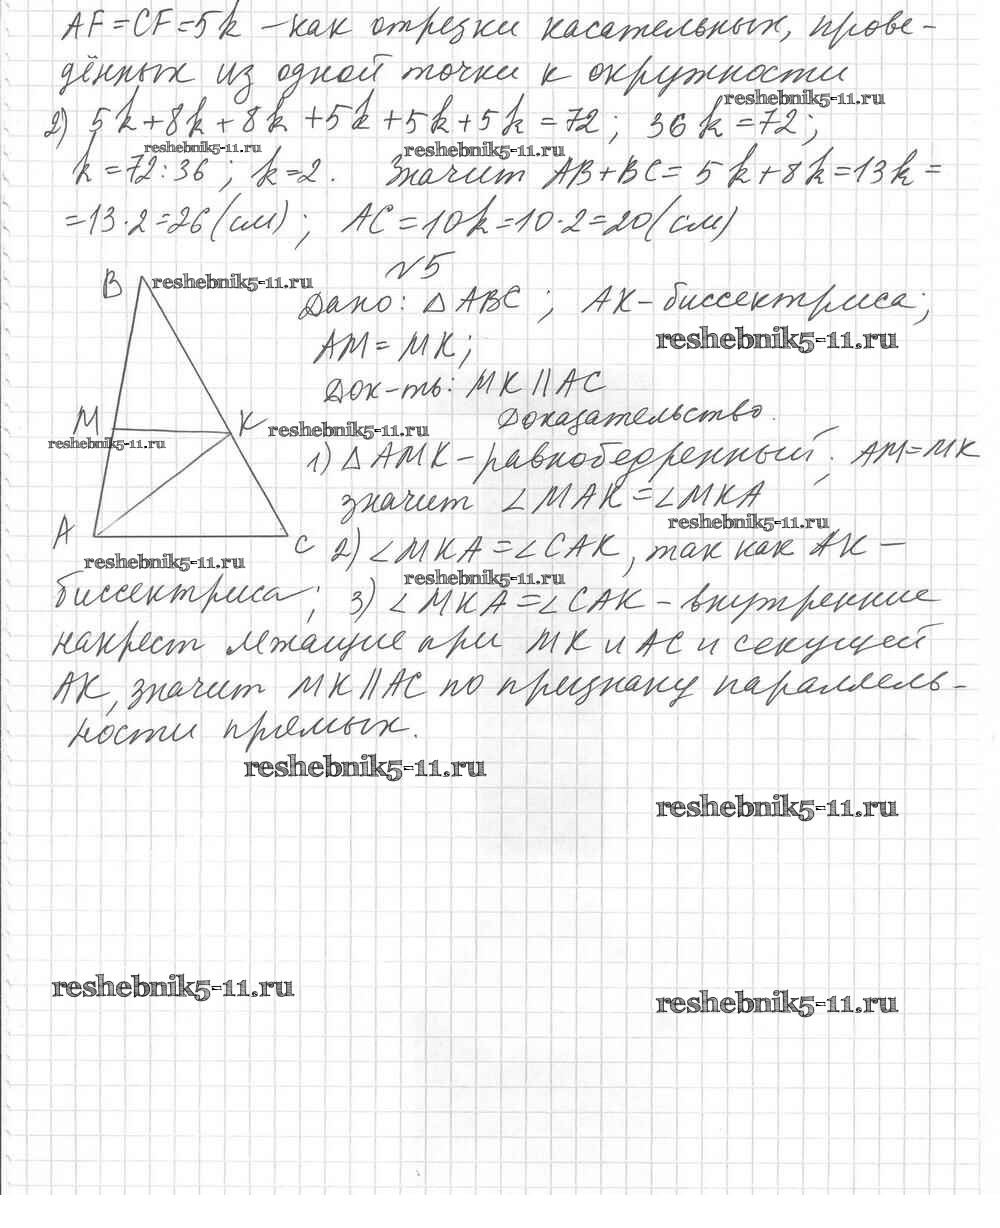 AF=CF=5k – как отрезки касательных, прове-
дённых из одной точки к окружности
reshebnik5-11.ru
2) 5k+8k+8k+5k+5k+5k=72; 36k=72;
reshebnik5-11.ru reshebnik5-11.ru
k=72:36; k=2. Значит AB+BC=5k+8k=13k=
=13·2=26(см); AC=10k=10·2=20(см)
№5
B reshebnik5-11.ru
Дано: △ABC; AK-биссектриса;
reshebnik5-11.ru
AM=MK;
Док-ть: MK||AC
Доказательство.
M K reshebnik5-11.ru
reshebnik5-11.ru
1) △AMK-равнобедренный; AM=MK
значит ∠MAK=∠MKA
reshebnik5-11.ru
A C 2) ∠MKA=∠CAK, так как AK –
reshebnik5-11.ru reshebnik5-11.ru
биссектриса; 3) ∠MKA=∠CAK – внутренние
накрест лежащие при MK и AC и секущей
AK, значит MK||AC по признаку параллель-
ности прямых.
reshebnik5-11.ru
reshebnik5-11.ru
reshebnik5-11.ru
reshebnik5-11.ru